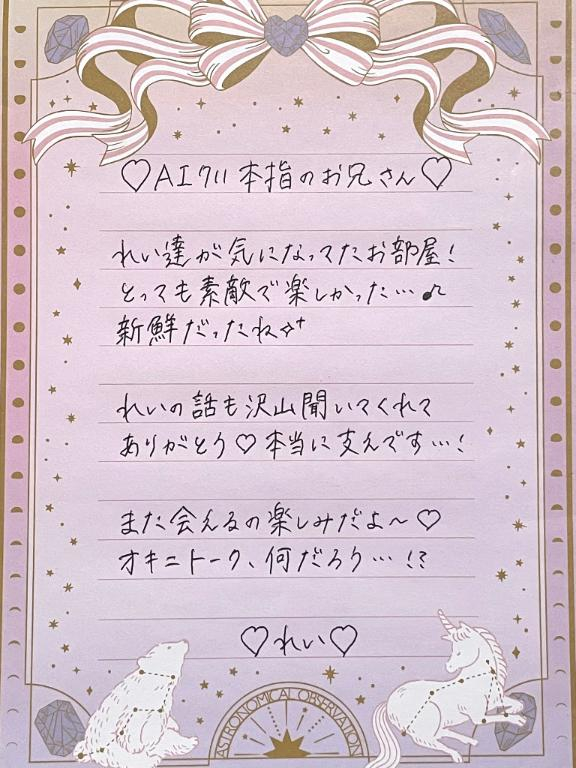 ♡AIクリ本指のお兄さん♡
れい達が気になってたお部屋！
とっても素敵で楽しかった…♪
新鮮だったね✧⁺
れいの話も沢山聞いてくれて
ありがとう♡本当に支えです…！
また会えるの楽しみだよ〜♡
オキニトーク、何だろう…!?
♡れい♡
ASTRONOMICAL OBSERVATION